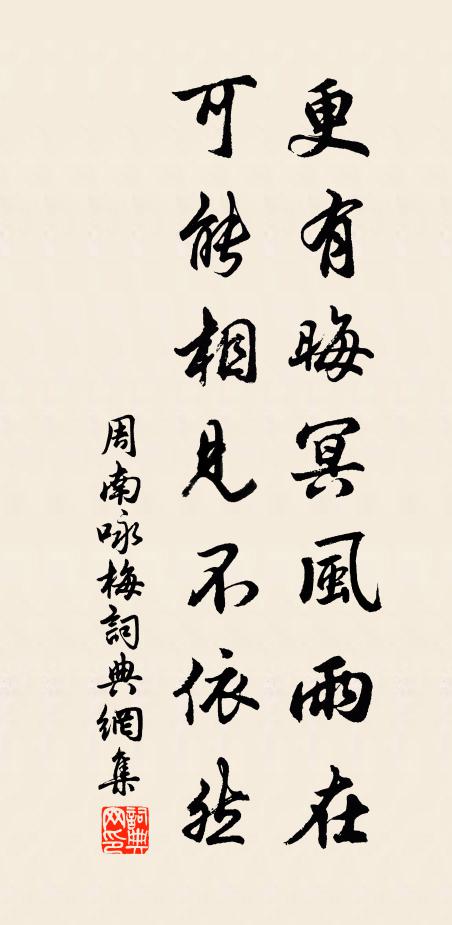 更有晦冥風雨在
可能相見不依然
周南咏梅詞典網集
詞典網印